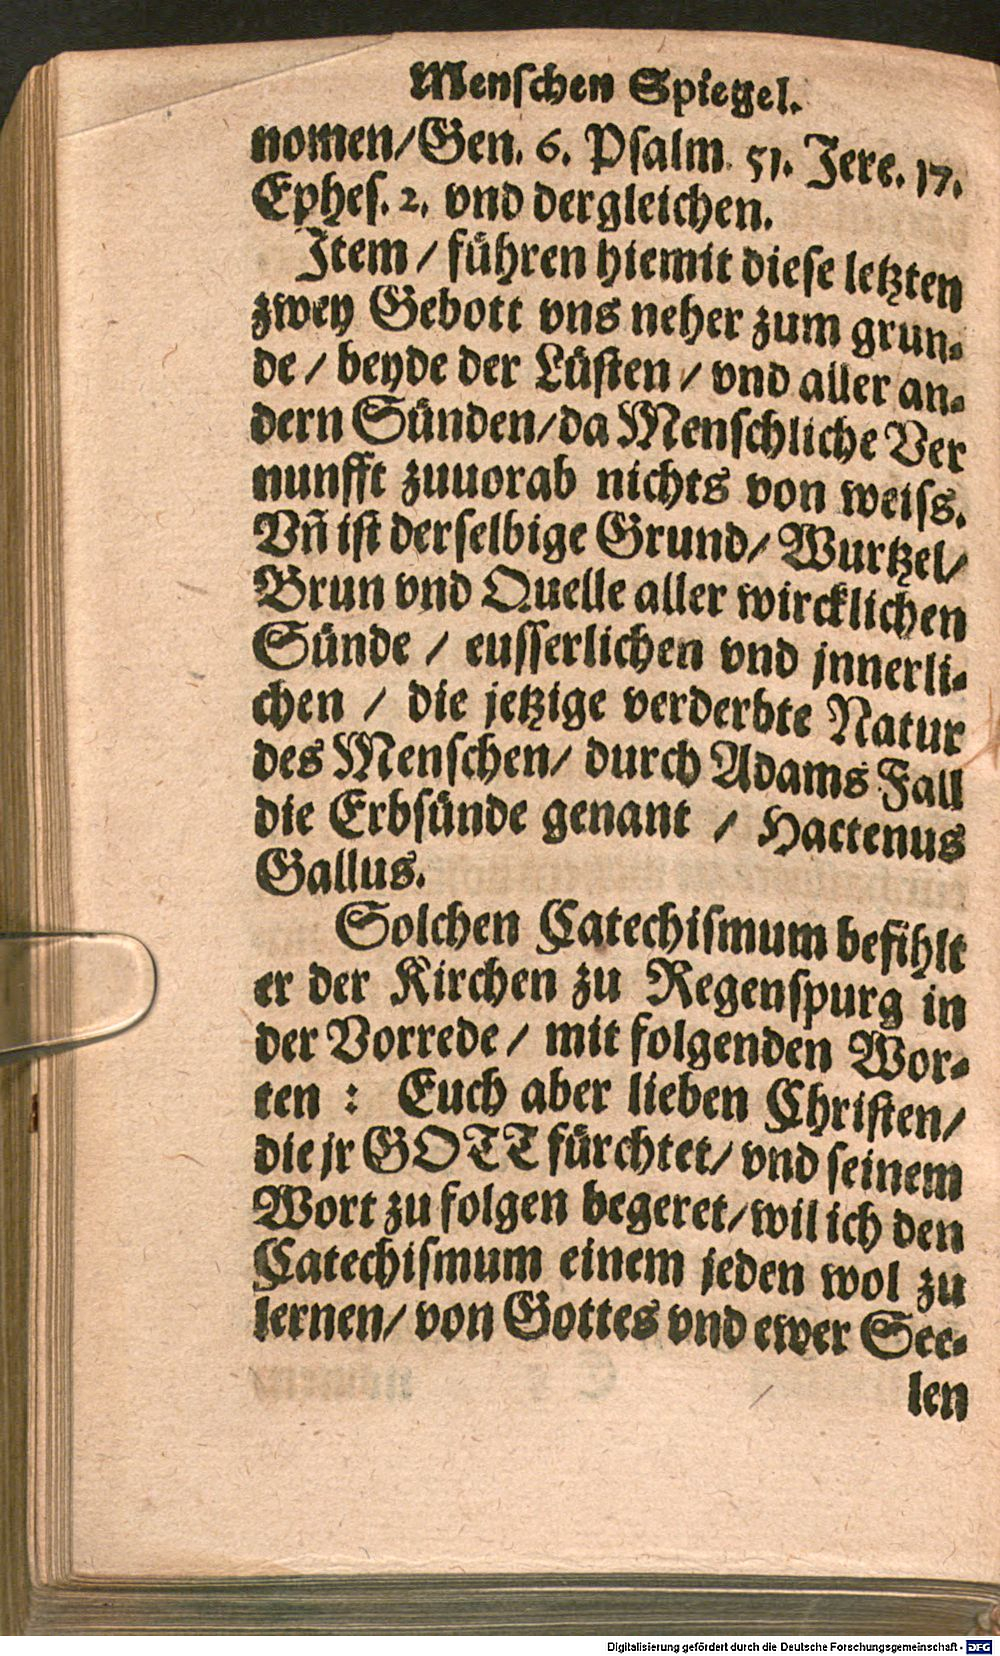 Menschen Spiegel.
nomen/Gen. 6. Psalm. 51. Jere. 17.
Ephes. 2. vnd dergleichen.
Item / führen hiemit diese letzten
zwey Gebott vns neher zum grun-
de / beyde der Lüsten / vnd aller an-
dern Sünden/da Menschliche Ver
nunfft zuuorab nichts von weiss.
Vn̄ ist derselbige Grund/ Wurtzel/
Brun vnd Quelle aller wircklichen
Sünde / eusserlichen vnd jnnerli-
chen / die jetzige verderbte Natur
des Menschen/ durch Adams Fall
die Erbsünde genant / Hactenus
Gallus.
Solchen Catechismum befihlt
er der Kirchen zu Regenspurg in
der Vorrede / mit folgenden Wor-
ten : Euch aber lieben Christen/
die jr GOTT fürchtet/ vnd seinem
Wort zu folgen begeret/wil ich den
Catechismum einem jeden wol zu
lernen/ von Gottes vnd ewer See-
len
Digitalisierung gefördert durch die Deutsche Forschungsgemeinschaft - DFG